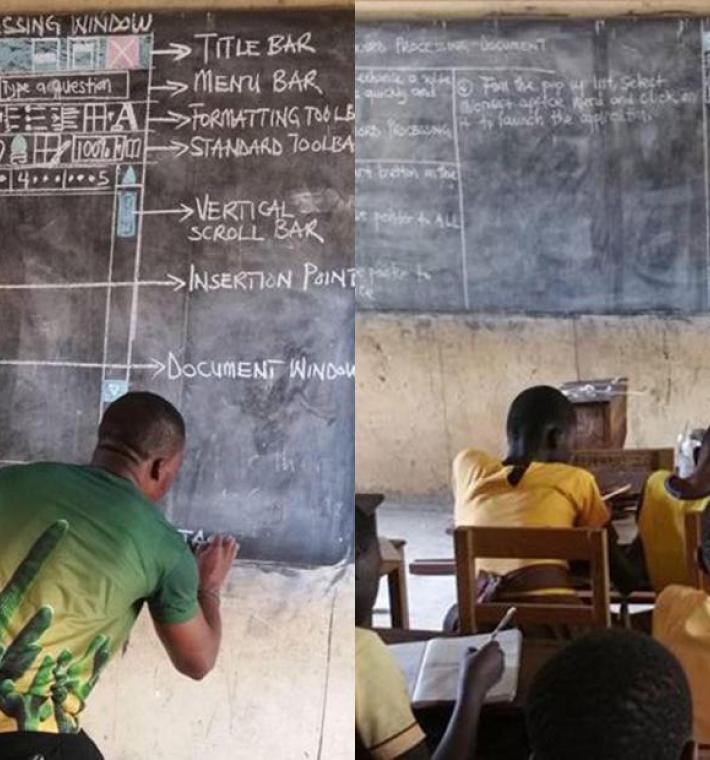 SSING WINDOW
TITLE BAR
Type a question
MENU BAR
A
FORMATTING TOOLB
100%
STANDARD TOOLBA
4 5
VERTICAL
SCROLL BAR
INSERTION POINT
DOCUMENT WINDOW
TA
PROCESSING DOCUMENT
quickly and
PROCESSING
button on the
pointer to ALL
pointer to
④ From the pop up list, select
Microsoft Word and click on
it to launch the application.